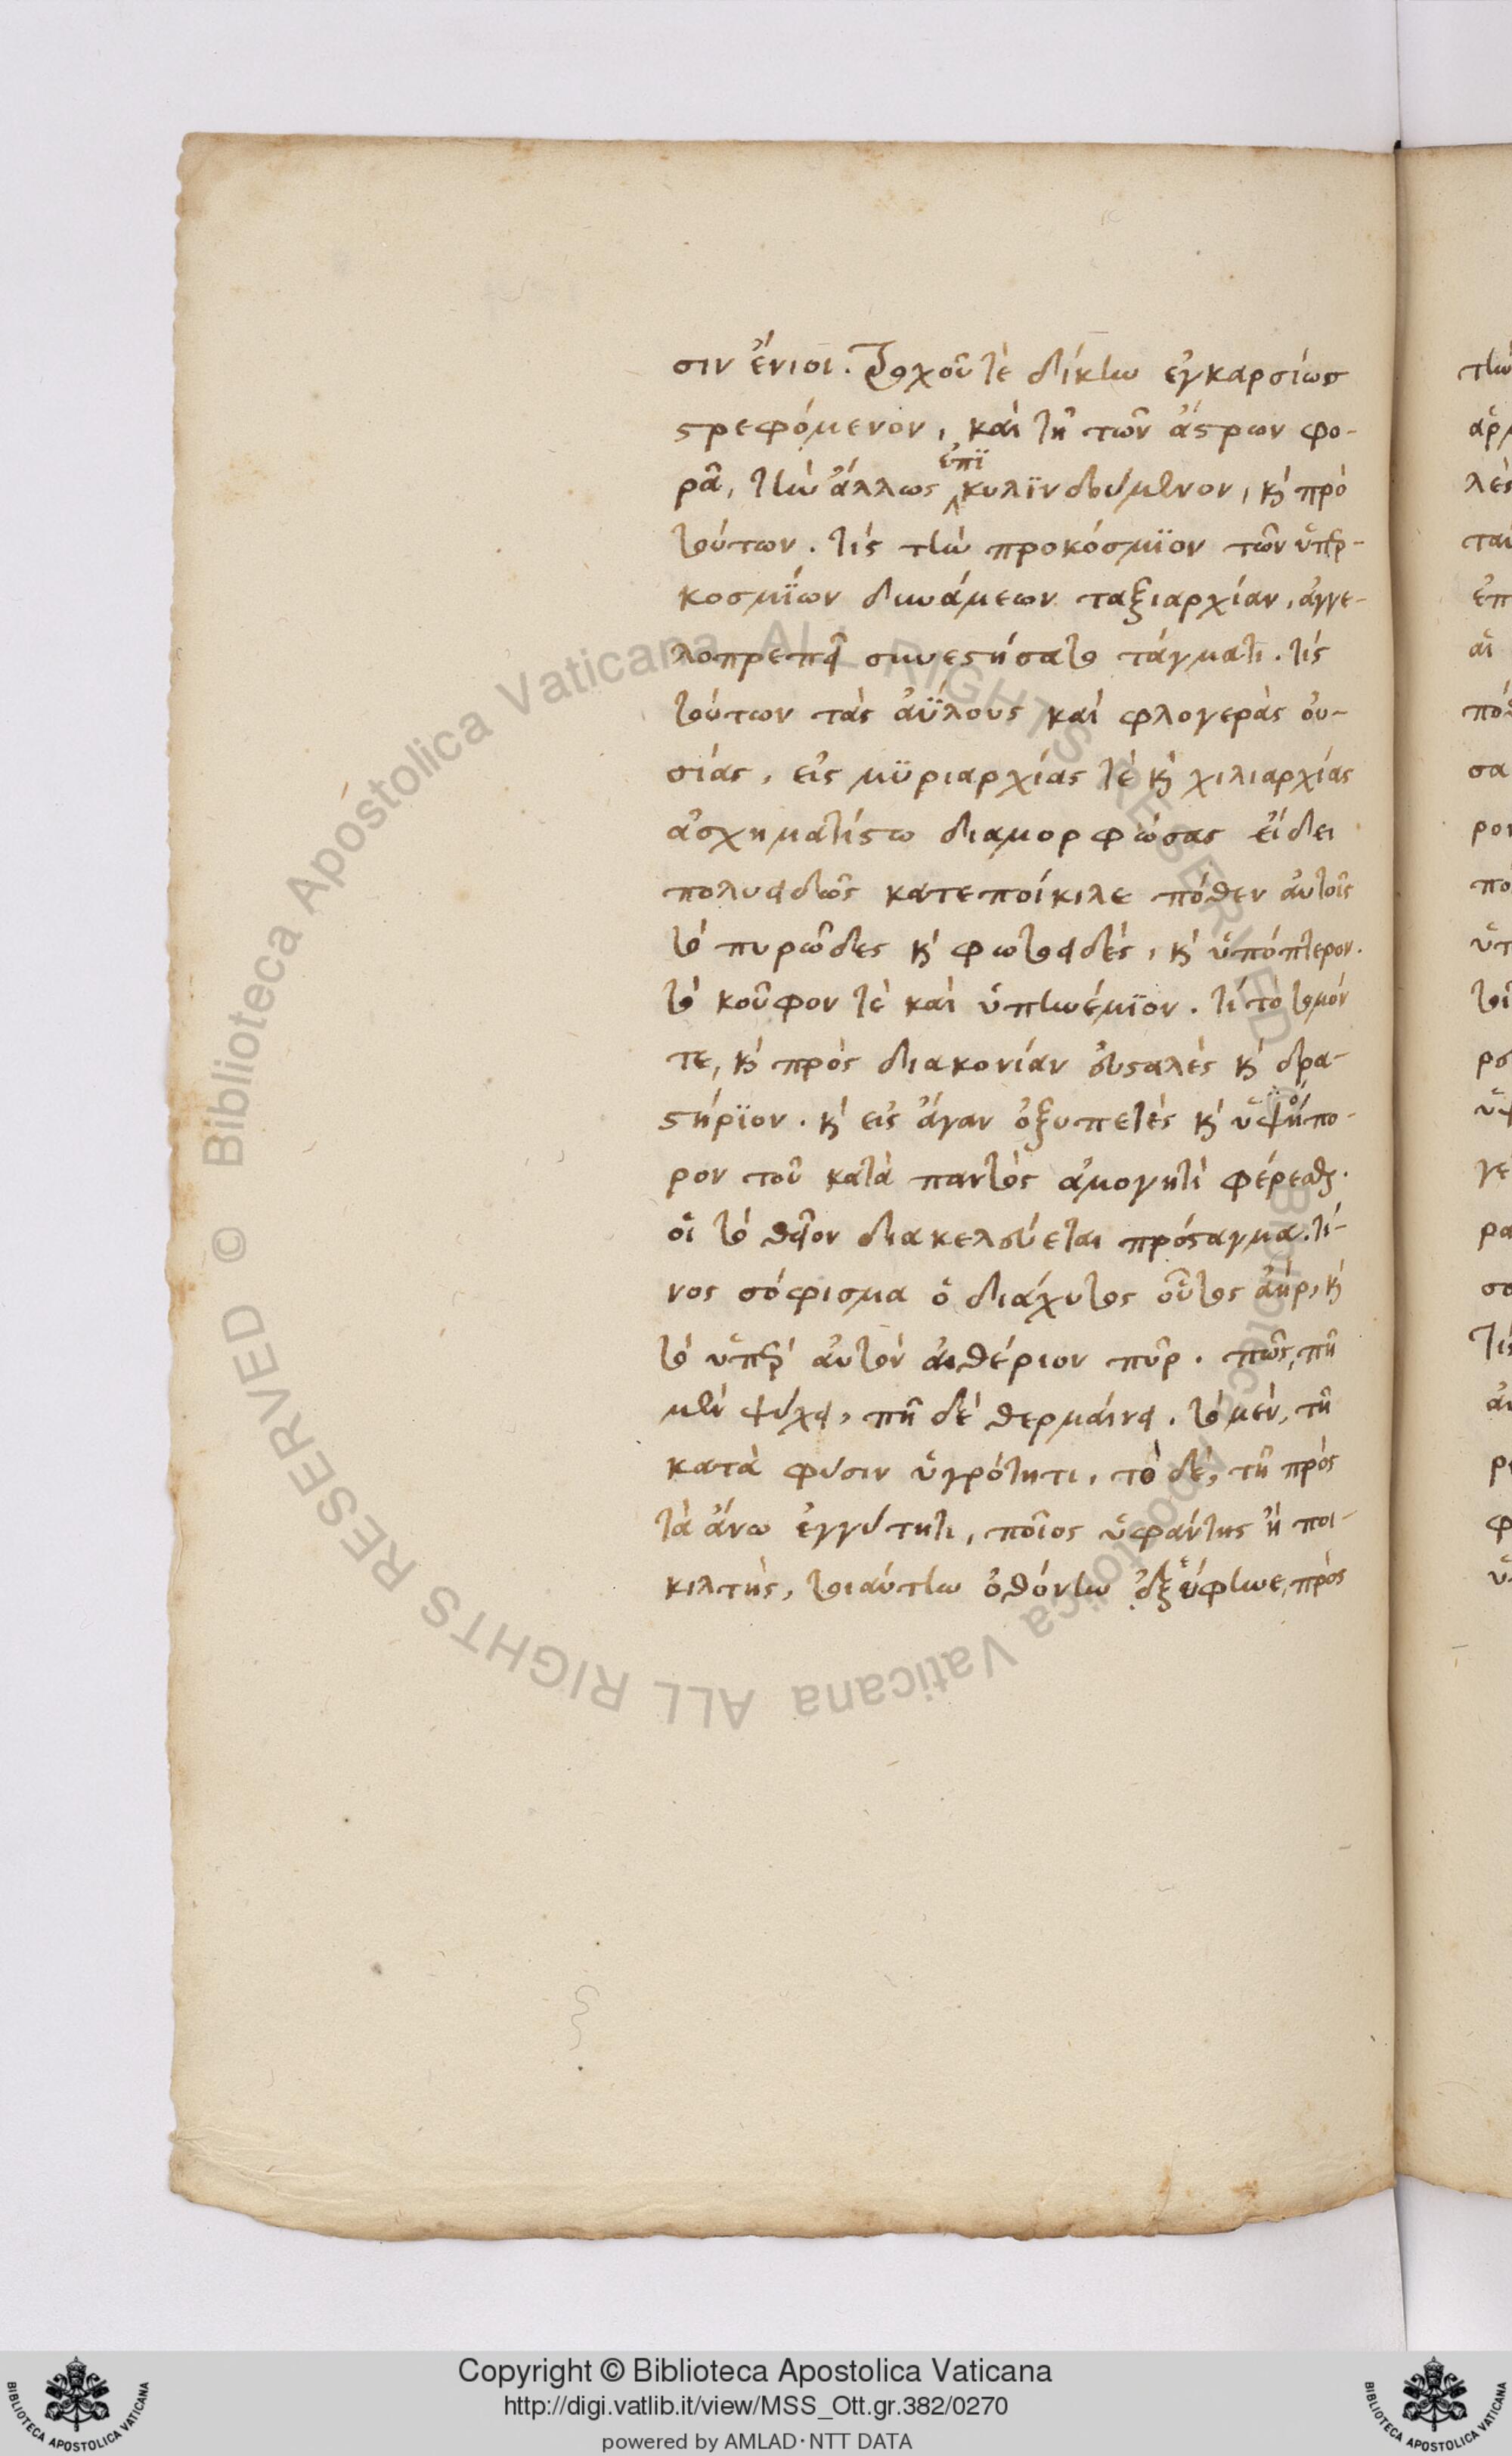 σιν ἔνιοι. τροχοῦ τὲ δίκην ἐγκαρσίως
στρεφόμενον, καὶ τῇ τῶν ἄστρων φο-
ρᾷ, τὴν ἄλλως ἐπϊκυλϊνδούμενον, κ̀ πρὸ
τούτων. τίς τὴν προκόσμϊον τῶν ὑπερ-
κοσμΐων δυνάμεων ταξιαρχίαν, ἀγγε-
λοπρεπεῖ συνεστήσατο τάγματι. τίς
τούτων τὰς ἀΰλους καὶ φλογερὰς οὐ-
σίας, εἰς μϋριαρχίας τὲ κ̀ χιλιαρχίας
ἀσχηματίστω διαμορφώσας εἴδει
πολυειδῶς κατεποίκιλε πόθεν αὐτοῖς
τὸ πυρῶδες κ̀ φωτοειδὲς, κ̀ ὑπόπτερον.
τὸ κοῦφον τὲ καὶ ὑπηνέμϊον. τί τὸ τομόν
τε, κ̀ πρὸς διακονίαν εὐσταλὲς κ̀ δρα-
στήρϊον. κ̀ εἰς ἄγαν ὀξυπετὲς κ̀ ὑψηπο-
ρον τοῦ κατὰ παντὸς ἀμογητὶ φέρεσθαι.
οἷ τὸ θεῖον διακελεύεται πρόσταγμα. τί-
νος σόφισμα ὁ διάχυτος οὗτος ἀὴρ, κ̀
τὸ ὑπὲρ αὐτὸν αἰθέριον πῦρ. πῶς, πῆ
μὲν ψύχει, πῆ δὲ θερμαίνει. τὸ μὲν, τῇ
κατὰ φύσιν ὑγρότητι, τὸ δὲ, τῇ πρὸς
τὰ ἄνω ἐγγύτητι, ποῖος ὑφάντης ἢ ποι-
κιλτὴς, τοιαύτην ὀθόνην ἐξύφηνε, πρὸς
Copyright © Biblioteca Apostolica Vaticana
http://digi.vatlib.it/view/MSS_Ott.gr.382/0270
powered by AMLAD·NTT DATA